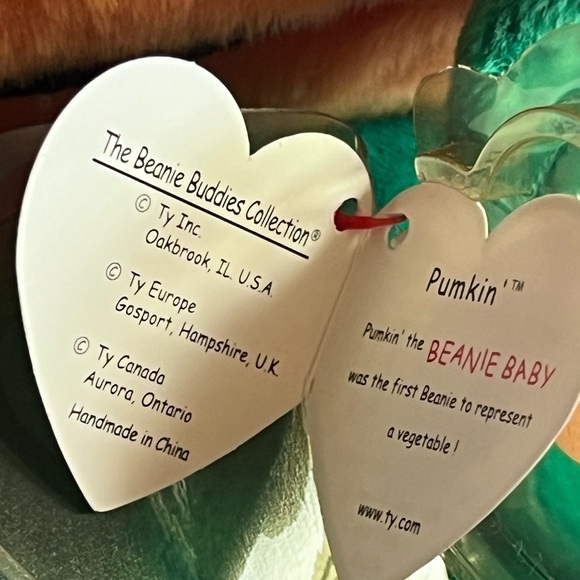 The Beanie Buddies Collection®
© Ty Inc.
Oakbrook, IL. U.S.A.
© Ty Europe
Gosport, Hampshire, U.K.
© Ty Canada
Aurora, Ontario
Handmade in China
Pumkin'™
Pumkin' the BEANIE BABY
was the first Beanie to represent
a vegetable !
www.ty.com